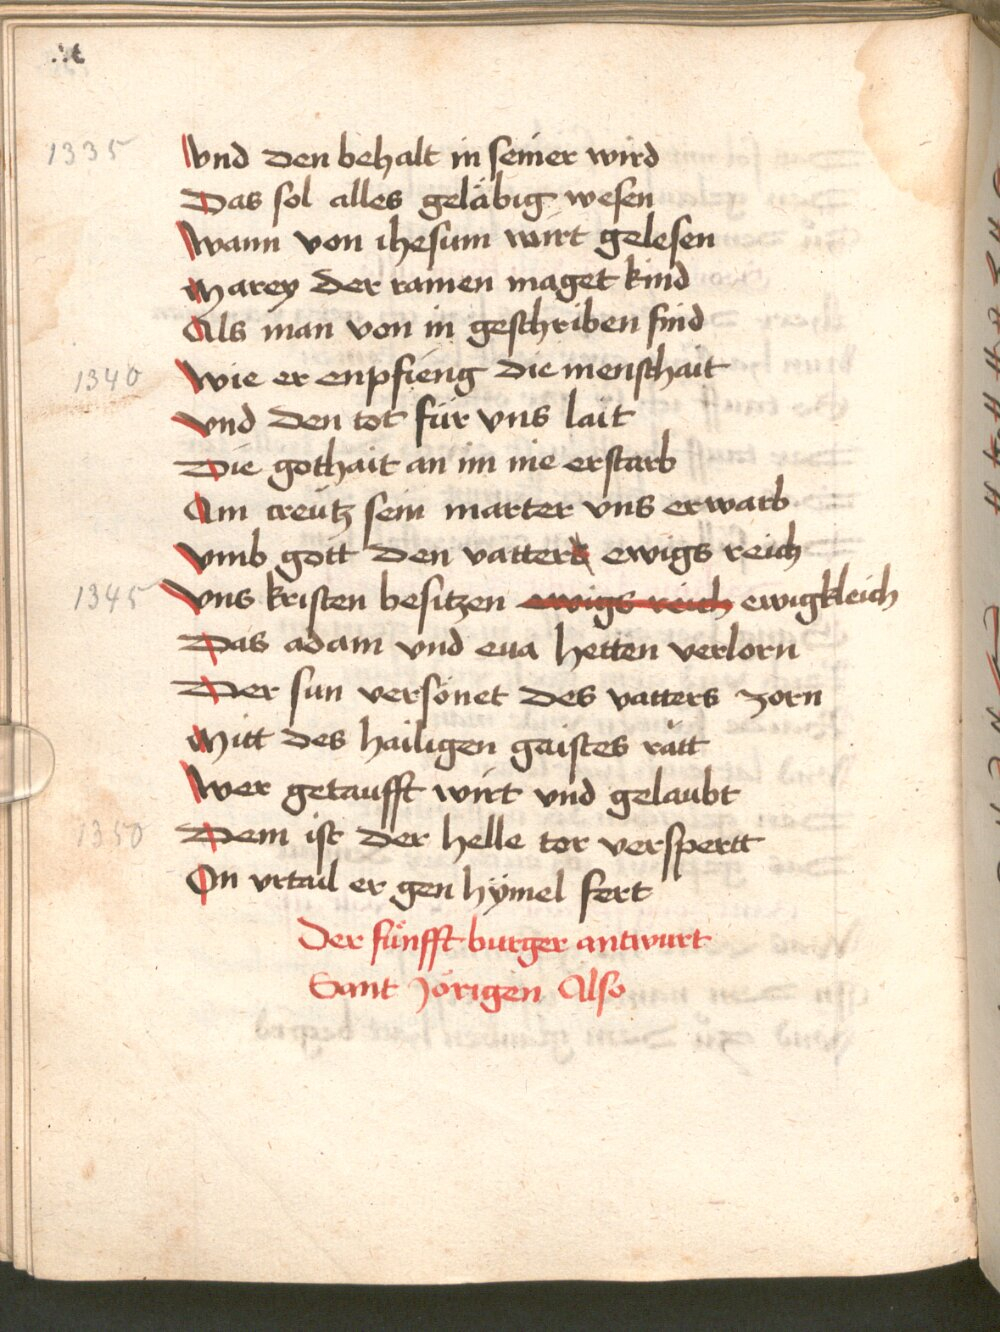 1335 Vnd den behalt in seiner wird
Das sol alles geläbig wesen
Wann von ihesum wirt gelesen
Marey der rainen maget kind
Als man von in geschriben find
1340 Wie er enpfieng die menschait
Vnd den tot für vns lait
Die gothait an im nie erstarb
Am creütz sein marter vns erwarb
Vmb gott den vatter ewigs reich
1345 Vns kristen besitzen ewigs reich ewigkleich
Das adam vnd eua hetten verlorn
Der sun versönet des vatters zorn
Mitt des hailigen gaistes rätt
Wer getaufft wirt vnd gelaubt
1350 Dem ist der helle tor verspertt
On vrtail er gen hÿmel fert
Der fünfft burger antwurt
Sant Jörigen Also